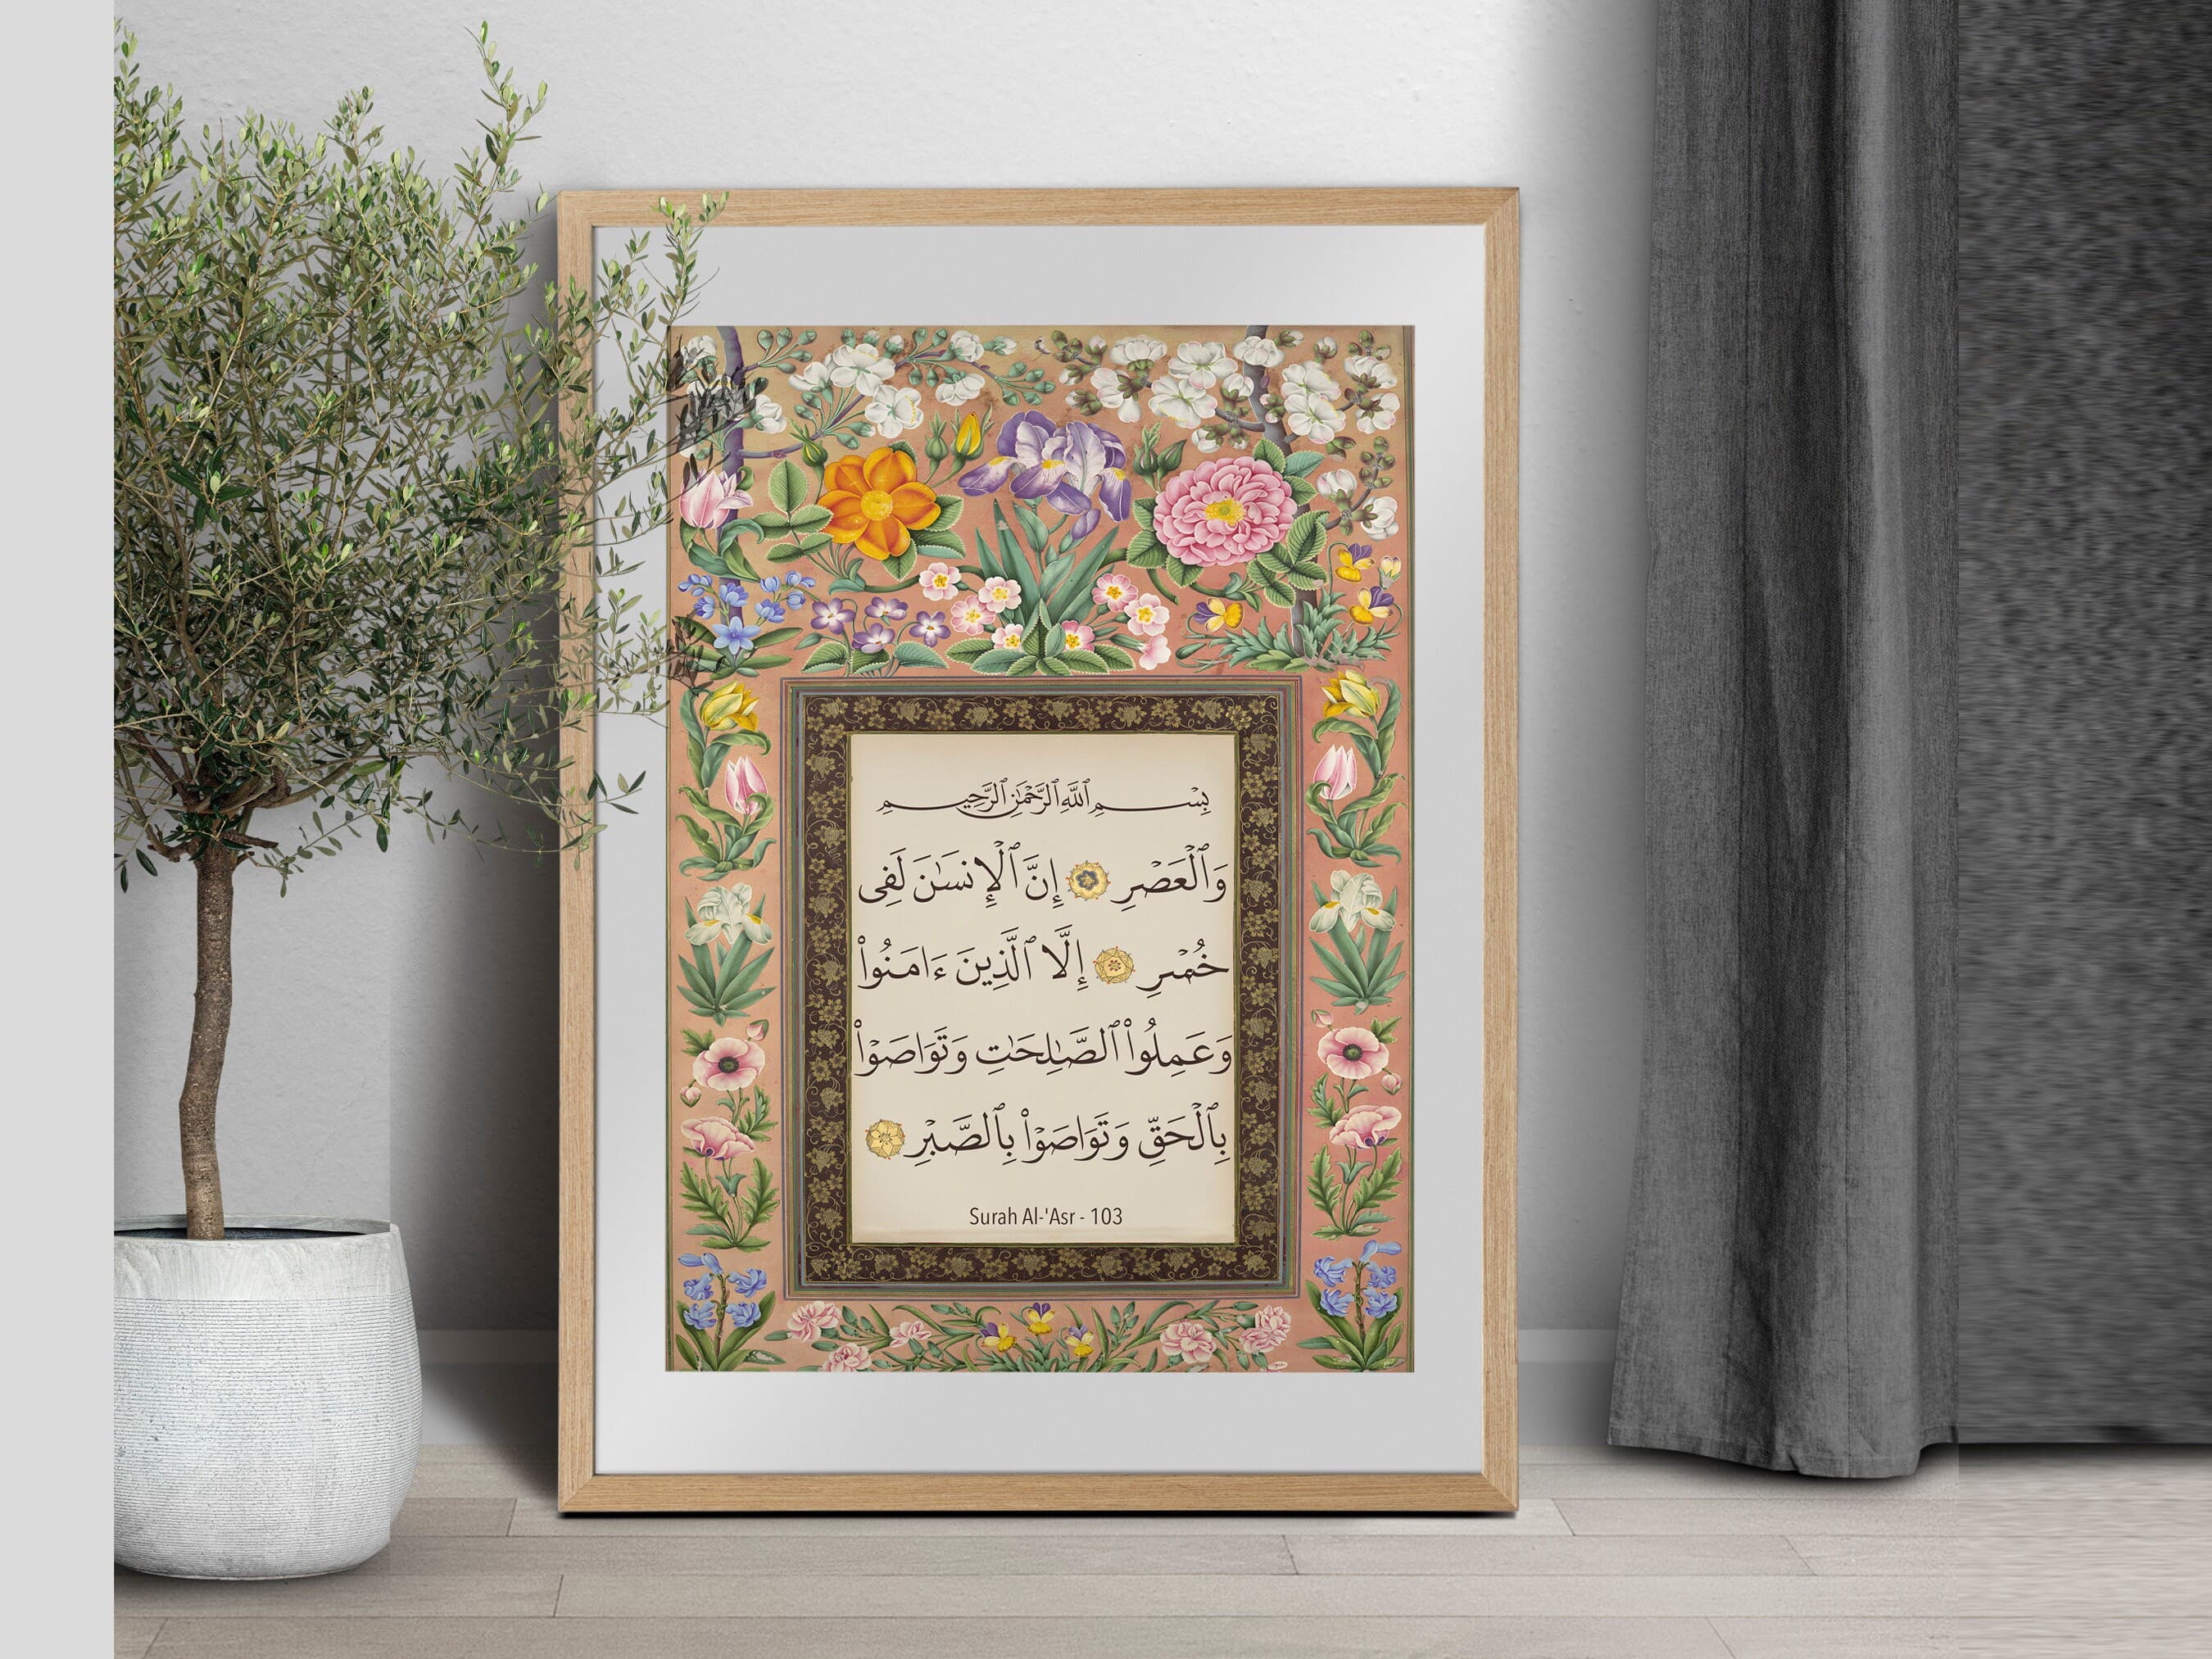 بِسْمِ ٱللَّهِ ٱلرَّحْمَٰنِ ٱلرَّحِيمِ
وَٱلْعَصْرِ إِنَّ ٱلْإِنسَٰنَ لَفِى
خُسْرٍ إِلَّا ٱلَّذِينَ ءَامَنُوا۟
وَعَمِلُوا۟ ٱلصَّٰلِحَٰتِ وَتَوَاصَوْا۟
بِٱلْحَقِّ وَتَوَاصَوْا۟ بِٱلصَّبْرِ
Surah Al-'Asr - 103